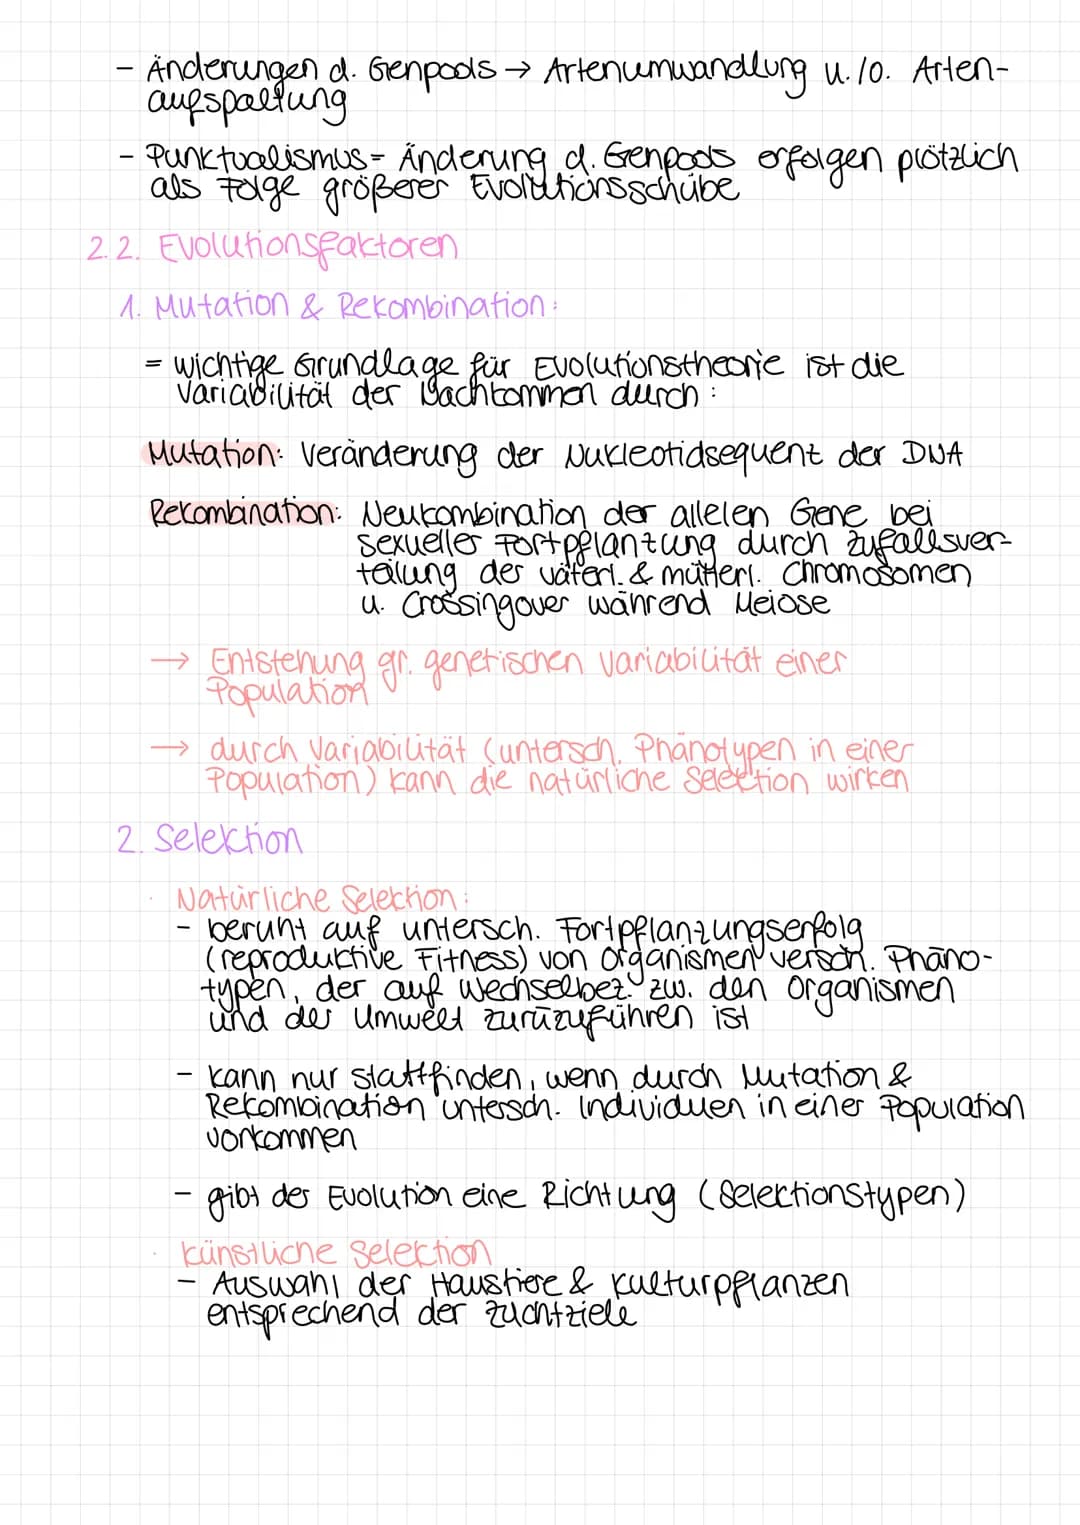 - Änderungen d. Genpools → Artenumwandlung u./o. Arten-
aufspaltung
- Punktualismus = Änderung d. Genpools erfolgen plötzlich
als Folge größerer Evolutionsschübe
2.2. Evolutionsfaktoren
1. Mutation & Rekombination:
= wichtige Grundlage für Evolutionstheorie ist die
Variabilität der Nachkommen durch:
Mutation: Veränderung der Nukleotidsequent der DNA
Rekombination: Neukombination der allelen Gene bei
sexueller Fortpflantung durch Zufallsver-
teilung der väterl. & mütterl. Chromosomen
u. Crossingover während Meiose
→ Entstehung gr. genetischen Variabilität einer
Population
→ durch Variabilität (untersch. Phänotypen in einer
Population) kann die natürliche Selektion wirken
2. Selektion
· Natürliche Selektion:
- beruht auf untersch. Fortpflanzungserfolg
(reproduktive Fitness) von Organismen versch. Phäno-
typen, der auf Wechselbez. zw. den Organismen
und der Umwelt zurüzuführen ist
- kann nur stattfinden, wenn durch Mutation &
Rekombination untersch. Individuen in einer Population
vorkommen
- gibt der Evolution eine Richtung (Selektionstypen)
· künstliche Selektion
- Auswahl der Haustiere & Kulturpflanzen
entsprechend der Zuchtziele